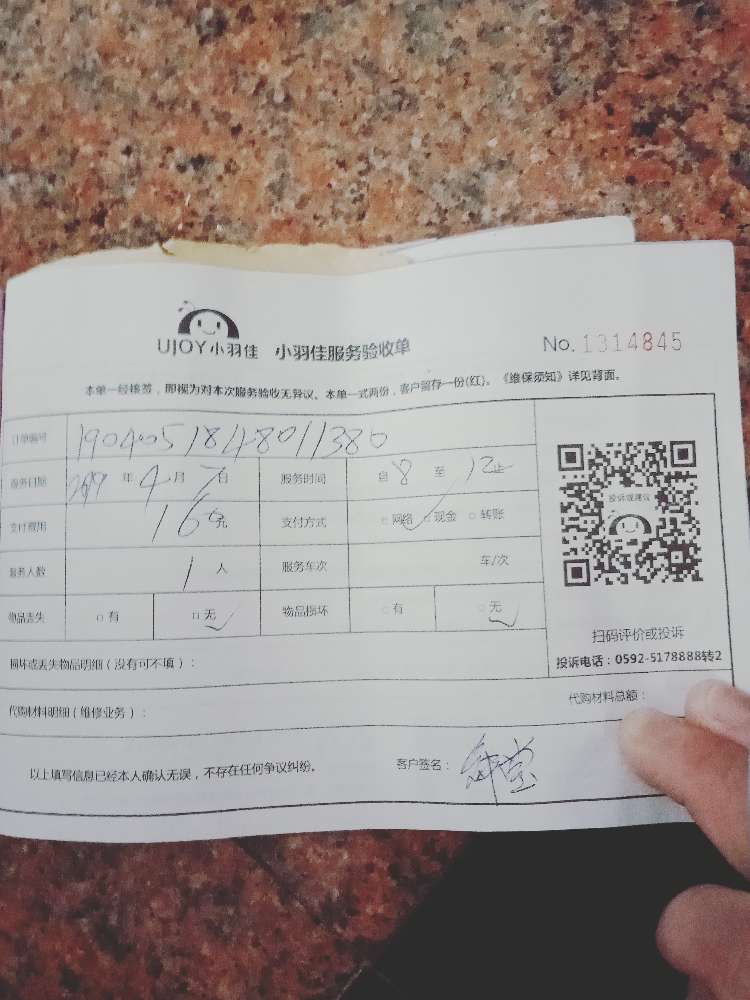 UJOY小羽佳 小羽佳服务验收单 No. 1314845
本单一经接签，即视为对本次服务验收无异议、本单一式两份，客户留存一份(红)。《维保须知》详见背面。
订单编号 1904051848011380
服务日期 2019 年 4 月 7 日 服务时间 自 8 至 12 止
支付费用 160 元 支付方式 □网络 □现金 □转账
服务人数 1 人 服务车次 车/次
物品丢失 □有 □无 物品损坏 □有 □无
投诉或建议
扫码评价或投诉
投诉电话：0592-5178888转2
损坏或丢失物品明细（没有可不填）：
代购材料明细（维修业务）： 代购材料总额：
以上填写信息已经本人确认无误，不存在任何争议纠纷。 客户签名：